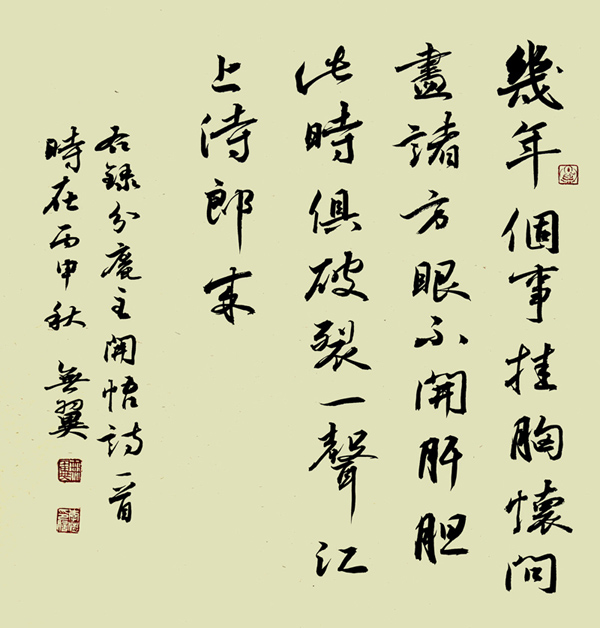 幾年個事挂胸懷問
盡諸方眼不開肝胆
此時俱破裂一聲江
上侍郎来
右録分庵主開悟詩一首
時在丙申秋 無翼